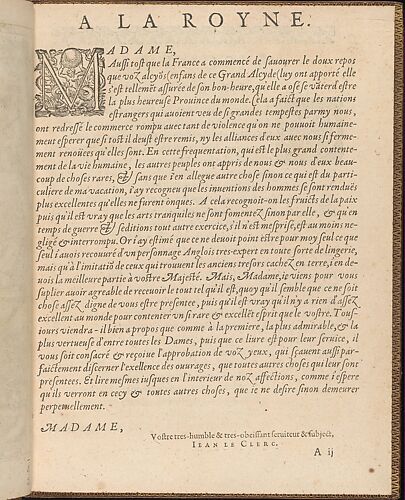 A LA ROYNE.
MADAME,
Aussi tost que la France a commencé de sauourer le doux repos
que voz alcyōs (enfans de ce Grand Alcyde) luy ont apporté elle
s'est tellemēt assurée de son bon-heure, qu'elle a osé se vāter d'estre
la plus heureuse Prouince du monde. Cela a faict que les nations
estrangers qui auoient veu de si grandes tempestes parmy nous,
ont redressé le commerce rompu auec tant de violence qu'on ne pouuoit humaine-
ment esperer que si tost il deust estre remis, ny les alliances d'eux auec nous si ferme-
ment renouées qu'elles sont. En ceste frequentation, qui est le plus grand contente-
ment de la vie humaine, les autres peuples ont appris de nous & nous d'eux beau-
coup de choses rares, & sans que i'en allegue autre chose sinon ce qui est du parti-
culiere de ma vacation, i'ay recogneu que les inuentions des hommes se sont renduës
plus excellentes qu'elles ne furent onques. A cela recognoit-on les fruicts de la paix
puis qu'il est vray que les arts tranquiles ne sont fomentez sinon par elle, & qu'en
temps de guerre & seditions tout autre exercice, s'il n'est mesprisé, est au moins ne-
gligé & interrompu. Or i'ay estimé que ce ne deuoit point estre pour moy seul ce que
seul i'auois recouuré d'vn personnage Anglois tres-expert en toute sorte de lingerie,
mais qu'à l'imitatiō de ceux qui trouuent les anciens tresors cachez en terre, i'en de-
uois la meilleure partie à vostre Majesté. Mais, Madame, ie viens pour vous
suplier auoir agrable de receuoir le tout tel qu'il est, quoy qu'il semble que ce ne soit
chose assez digne de vous estre presentee, puis qu'il est vray qu'il n'y a rien d'assez
excellent au monde pour contenter vn si rare & excellēt esprit que le vostre. Tous-
iours viendra-il bien a propos que comme à la premiere, la plus admirable, & la
plus vertueuse d'entre toutes les Dames, puis que ce liure est pour leur seruice, il
vous soit consacré & reçoiue l'approbation de voz yeux, qui sçauent aussi par-
faictement discerner l'exellence des ouurages, que toutes autres choses qui leur sont
presentees. Et lire mesmes iusques en l'interieur de noz affections, comme i'espere
qu'ils verront en cecy & toutes autres choses, que ie ne desire sinon demeurer
perpetuellement.
MADAME,
Vostre tres-humble & tres-obeissant seruiteur & subject,
IEAN LE CLERC.
A ij